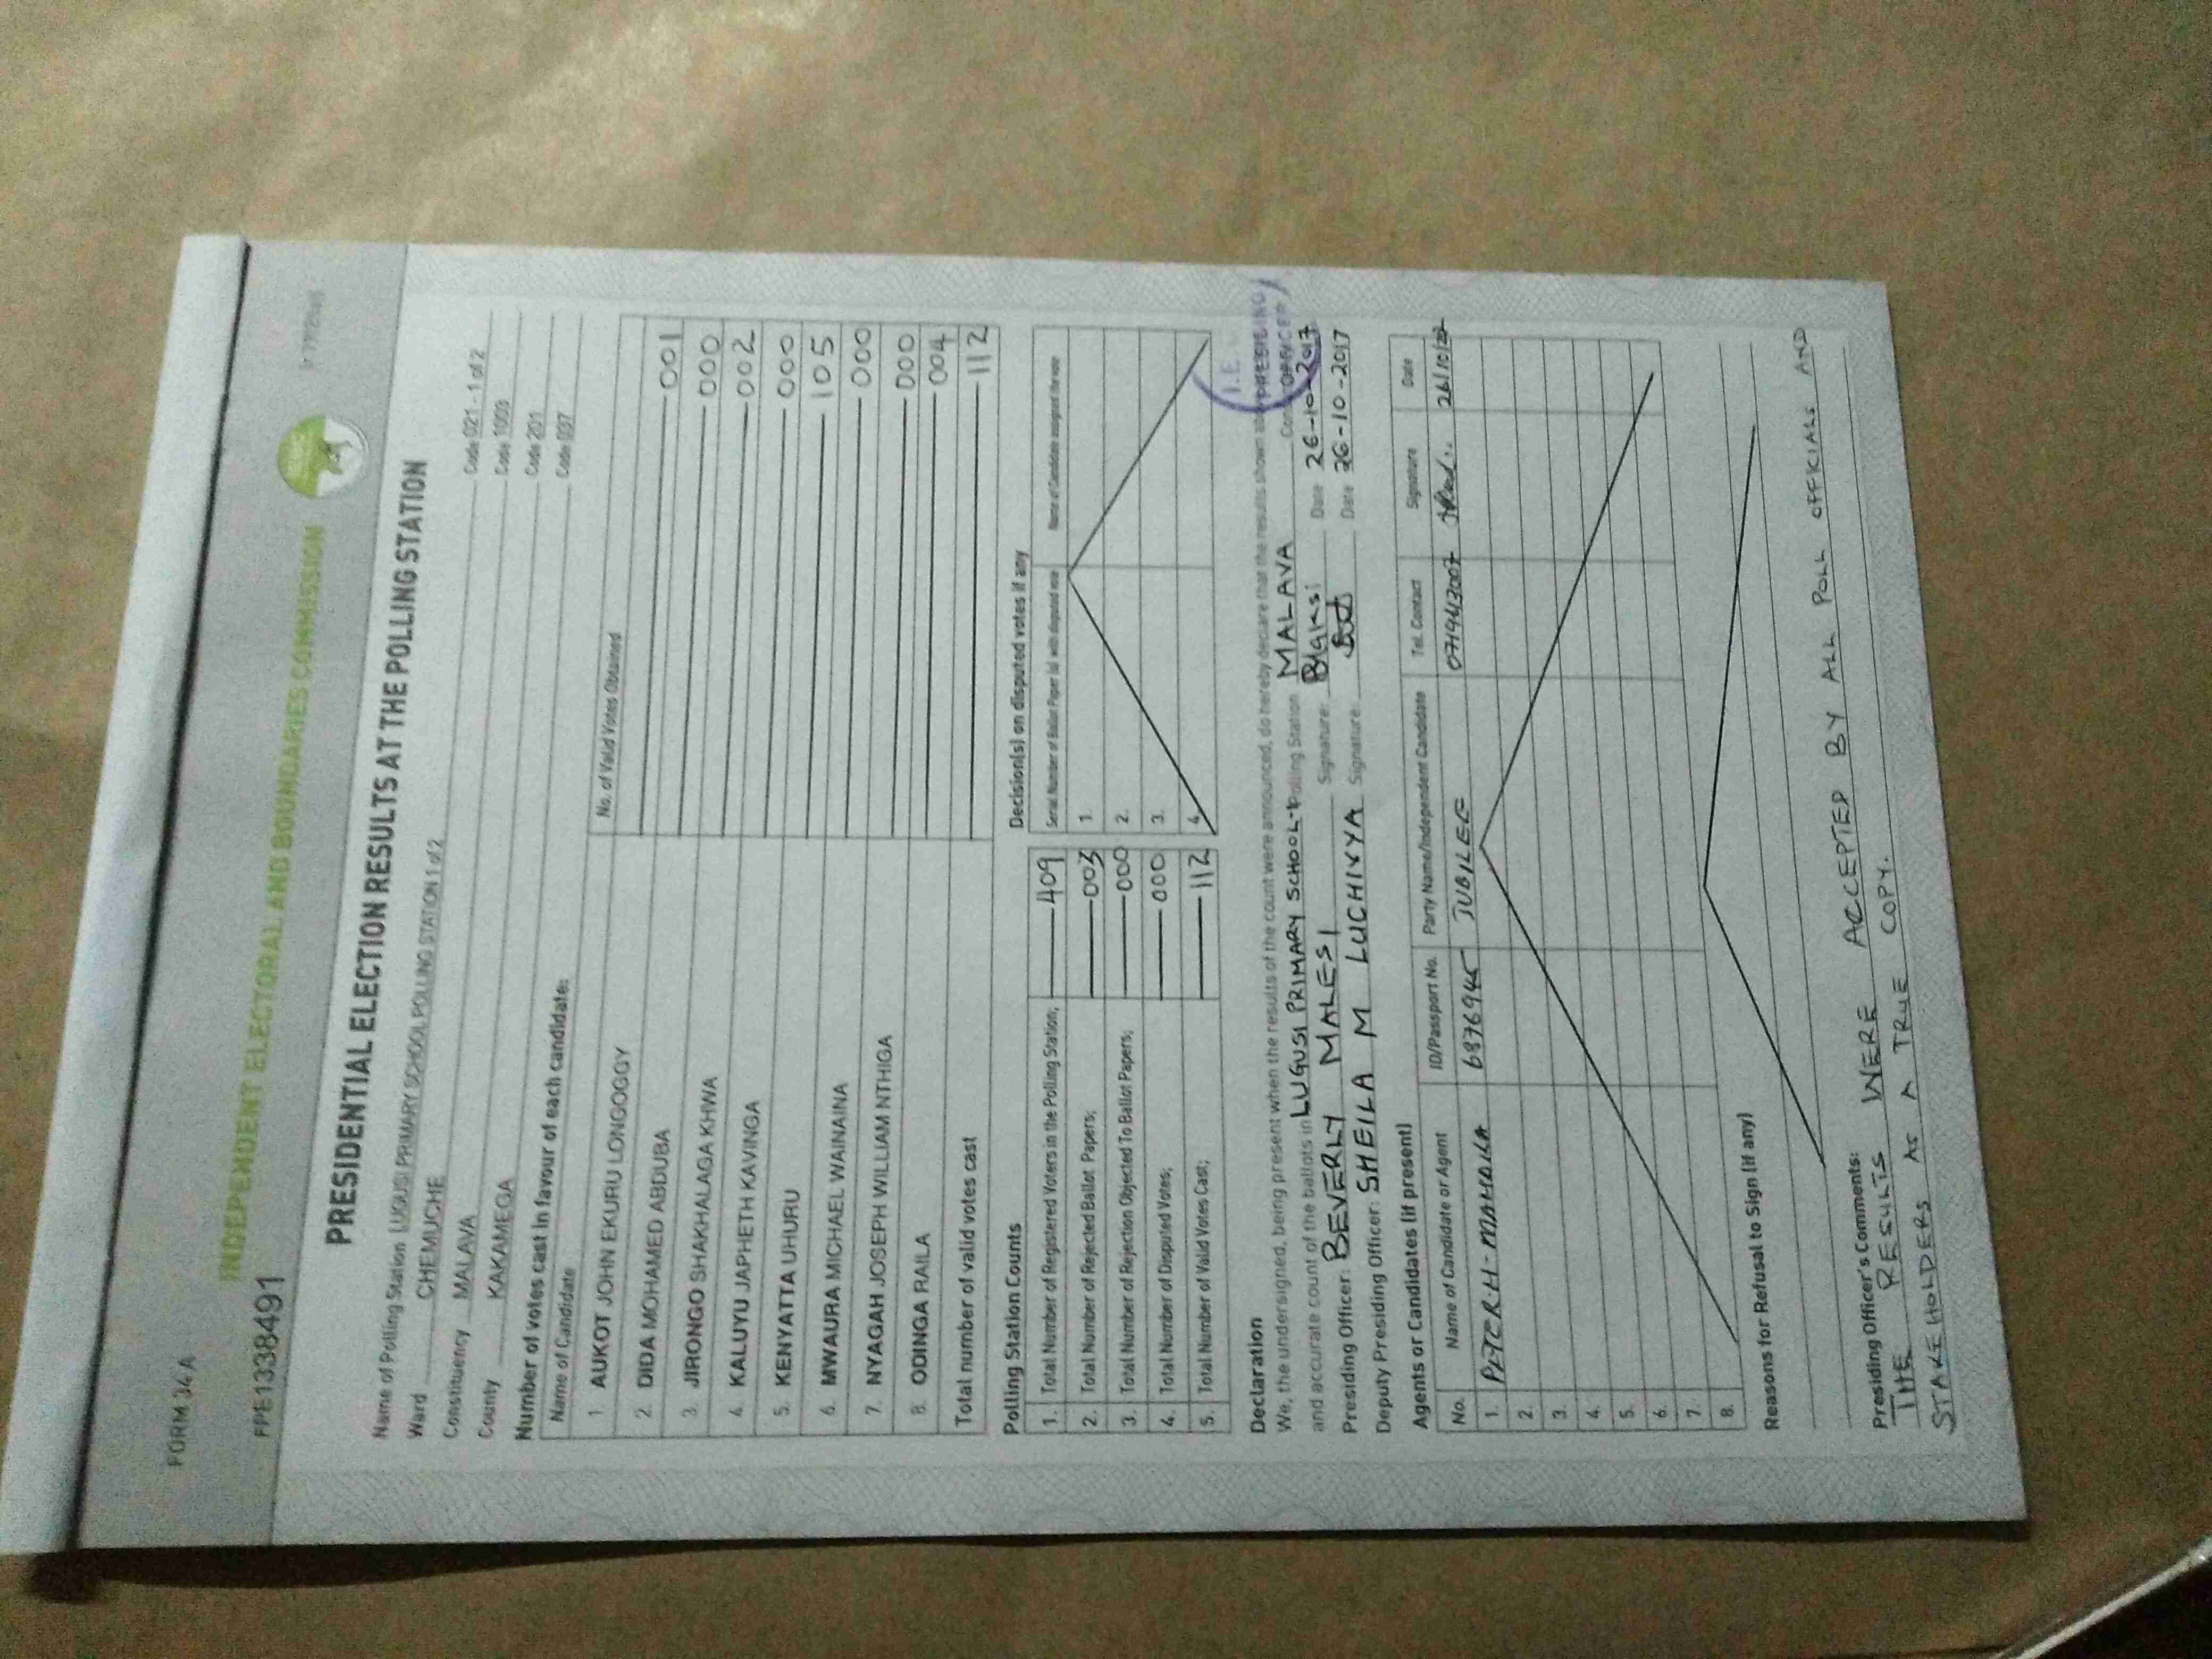 FORM 34A
INDEPENDENT ELECTORAL AND BOUNDARIES COMMISSION
FPE1338491
PRESIDENTIAL ELECTION RESULTS AT THE POLLING STATION
Name of Polling Station LUGUSI PRIMARY SCHOOL POLLING STATION 1 of 2 Code 021 - 1 of 2
Ward CHEMUCHE Code 1003
Constituency MALAVA Code 201
County KAKAMEGA Code 037
Number of votes cast in favour of each candidate:
Name of Candidate No. of Valid Votes Obtained
1 AUKOT JOHN EKURU LONGOGGY 001
2. DIDA MOHAMED ABDUBA 000
3. JIRONGO SHAKHALAGA KHWA 002
4. KALUYU JAPHETH KAVINGA 000
5. KENYATTA UHURU 105
6. MWAURA MICHAEL WAINAINA 000
7. NYAGAH JOSEPH WILLIAM NTHIGA 000
8. ODINGA RAILA 004
Total number of valid votes cast 112
Polling Station Counts
1. Total Number of Registered Voters in the Polling Station; 409
2. Total Number of Rejected Ballot Papers; 003
3. Total Number of Rejection Objected To Ballot Papers; 000
4. Total Number of Disputed Votes; 000
5. Total Number of Valid Votes Cast; 112
Decision(s) on disputed votes if any
Serial Number of Ballot Paper (s) with disputed vote Name of Candidate assigned the vote
1.
2.
3.
4.
Declaration
We, the undersigned, being present when the results of the count were announced, do hereby declare that the results shown
and accurate count of the ballots in LUGUSI PRIMARY SCHOOL-1 Polling Station MALAVA
PRESIDING OFFICER
Presiding Officer: BEVERLY MALESI Signature: Date 26-10-2017
Deputy Presiding Officer: SHEILA M LUCHIVYA Signature: Date 26-10-2017
Agents or Candidates (if present)
No. Name of Candidate or Agent ID/Passport No. Party Name/Independent Candidate Tel. Contact Signature Date
1. PETER H. 6876945 JUBILEE
2.
3.
4.
5.
6.
7.
8.
Reasons for Refusal to Sign (if any)
Presiding Officer's Comments:
THE RESULTS WERE ACCEPTED BY ALL POLL OFFICIALS AND
STAKEHOLDERS AS A TRUE COPY.